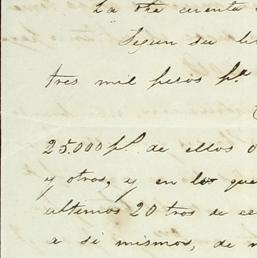 La otra cuenta
Segun su li
tres mil pesos pa
25.000 ps. de ellos
y otros, y en lo que
ultimos 20 tros de ce
a si mismos, de